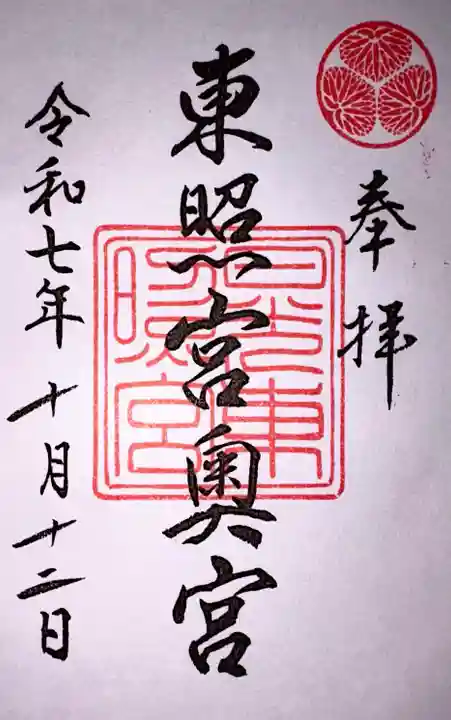 奉拝
東照宮奥宮
日光東照宮
令和七年十月十二日